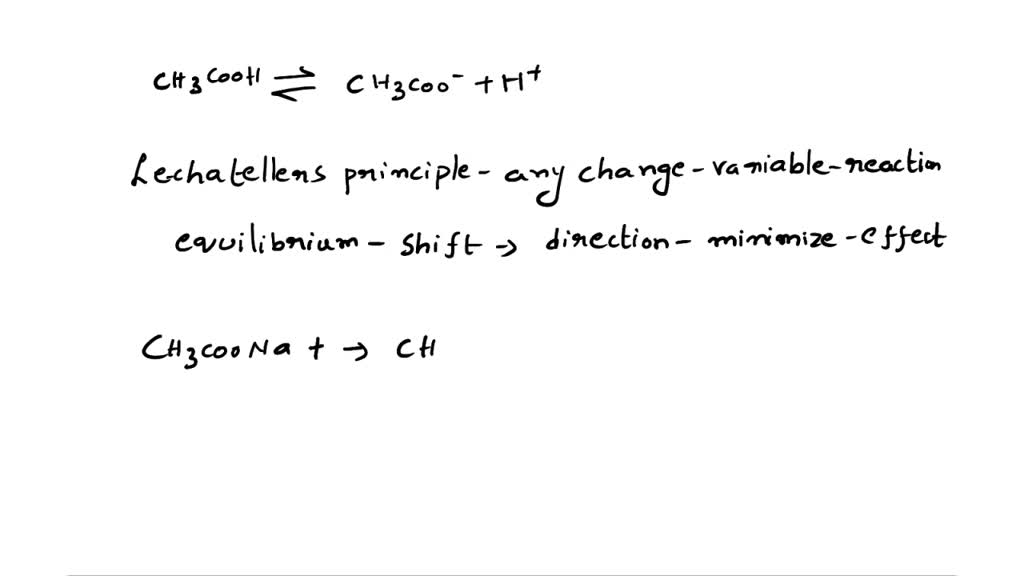 CH3COOH ⇌ CH3COO⁻ + H⁺
Lechatellens principle - any change - variable - reaction
equilibrium - shift → direction - minimize - effect
CH3COONa + → CH